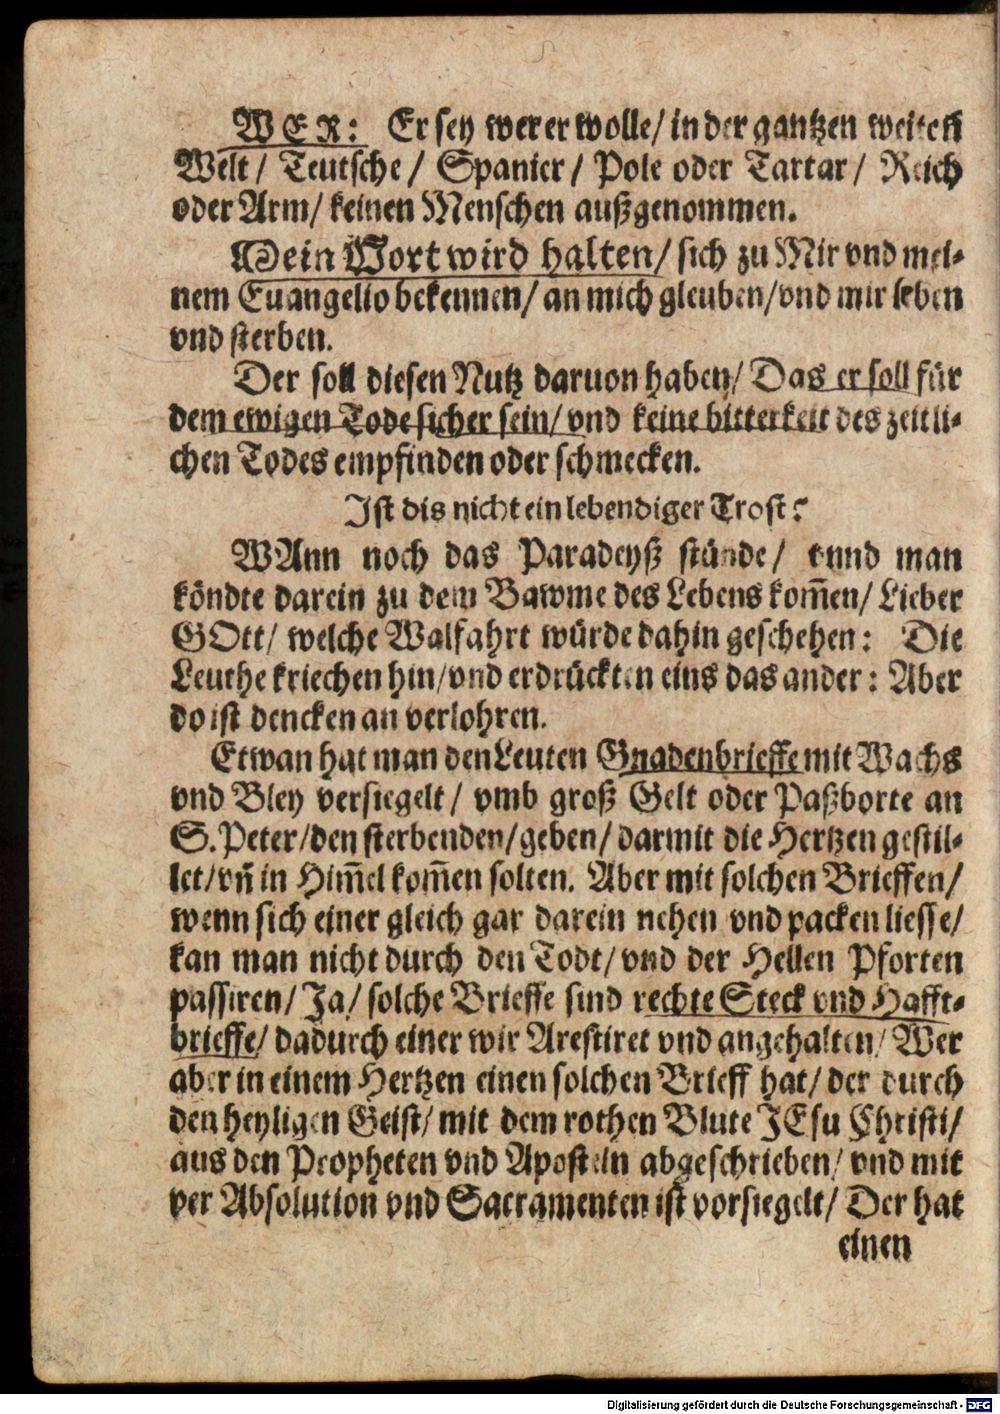 WER: Er sey wer er wolle/ in der gantzen weiten
Welt/ Teutsche/ Spanier/ Pole oder Tartar/ Reich
oder Arm/ keinen Menschen außgenommen.
Mein Wort wird halten/ sich zu Mir vnd mei-
nem Euangelio bekennen/ an mich gleuben/ vnd mir leben
vnd sterben.
Der soll diesen Nutz daruon haben/ Das er soll für
dem ewigen Tode sicher sein/ vnd keine bitterkeit des zeitli-
chen Todes empfinden oder schmecken.
Ist dis nicht ein lebendiger Trost?
WAnn noch das Paradeyß stünde/ vnnd man
köndte darein zu dem Bawme des Lebens kom̄en/ Lieber
GOtt/ welche Walfahrt würde dahin geschehen: Die
Leuthe kriechen hin/ vnd erdrückten eins das ander: Aber
do ist dencken an verlohren.
Etwan hat man den Leuten Gnadenbrieffe mit Wachs
vnd Bley versiegelt/ vmb groß Gelt oder Paßborte an
S. Peter/ den sterbenden/ geben/ darmit die Hertzen gestil-
let/ vn̄ in Him̄el kom̄en solten. Aber mit solchen Brieffen/
wenn sich einer gleich gar darein nehen vnd packen liesse/
kan man nicht durch den Todt/ vnd der Hellen Pforten
passiren/ Ja/ solche Brieffe sind rechte Steck vnd Hafft-
brieffe/ dadurch einer wir Arestiret vnd angehalten/ Wer
aber in einem Hertzen einen solchen Brieff hat/ der durch
den heyligen Geist/ mit dem rothen Blute JEsu Christi/
aus den Propheten vnd Aposteln abgeschrieben/ vnd mit
der Absolution vnd Sacramenten ist vorsiegelt/ Der hat
einen
Digitalisierung gefördert durch die Deutsche Forschungsgemeinschaft - DFG